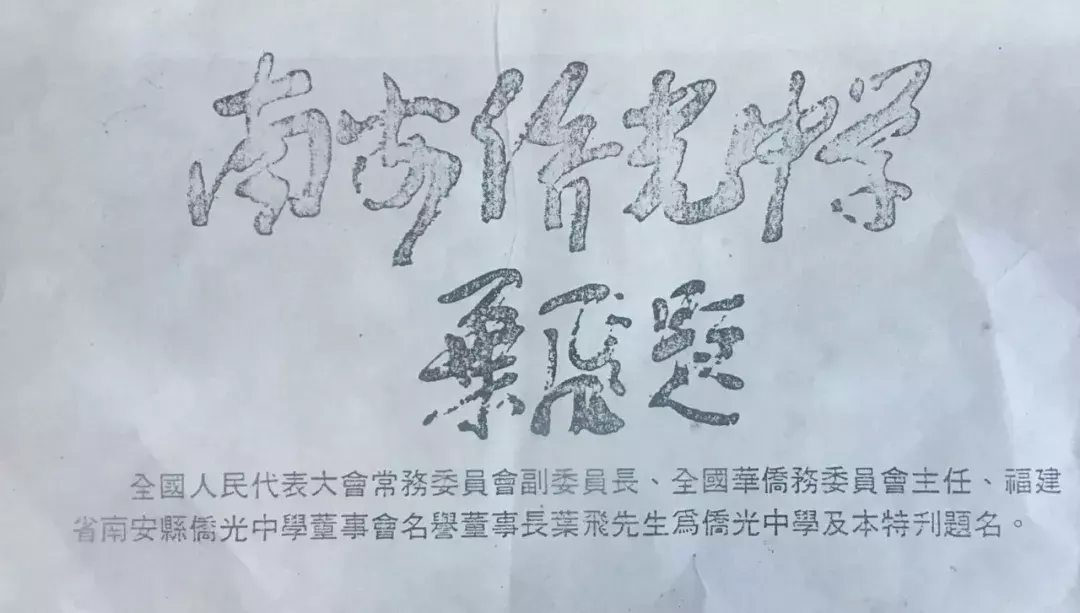 南安侨光中学
葉飛題
全國人民代表大會常務委員會副委員長、全國華僑務委員會主任、福建
省南安縣僑光中學董事會名譽董事長葉飛先生爲僑光中學及本特刋題名。